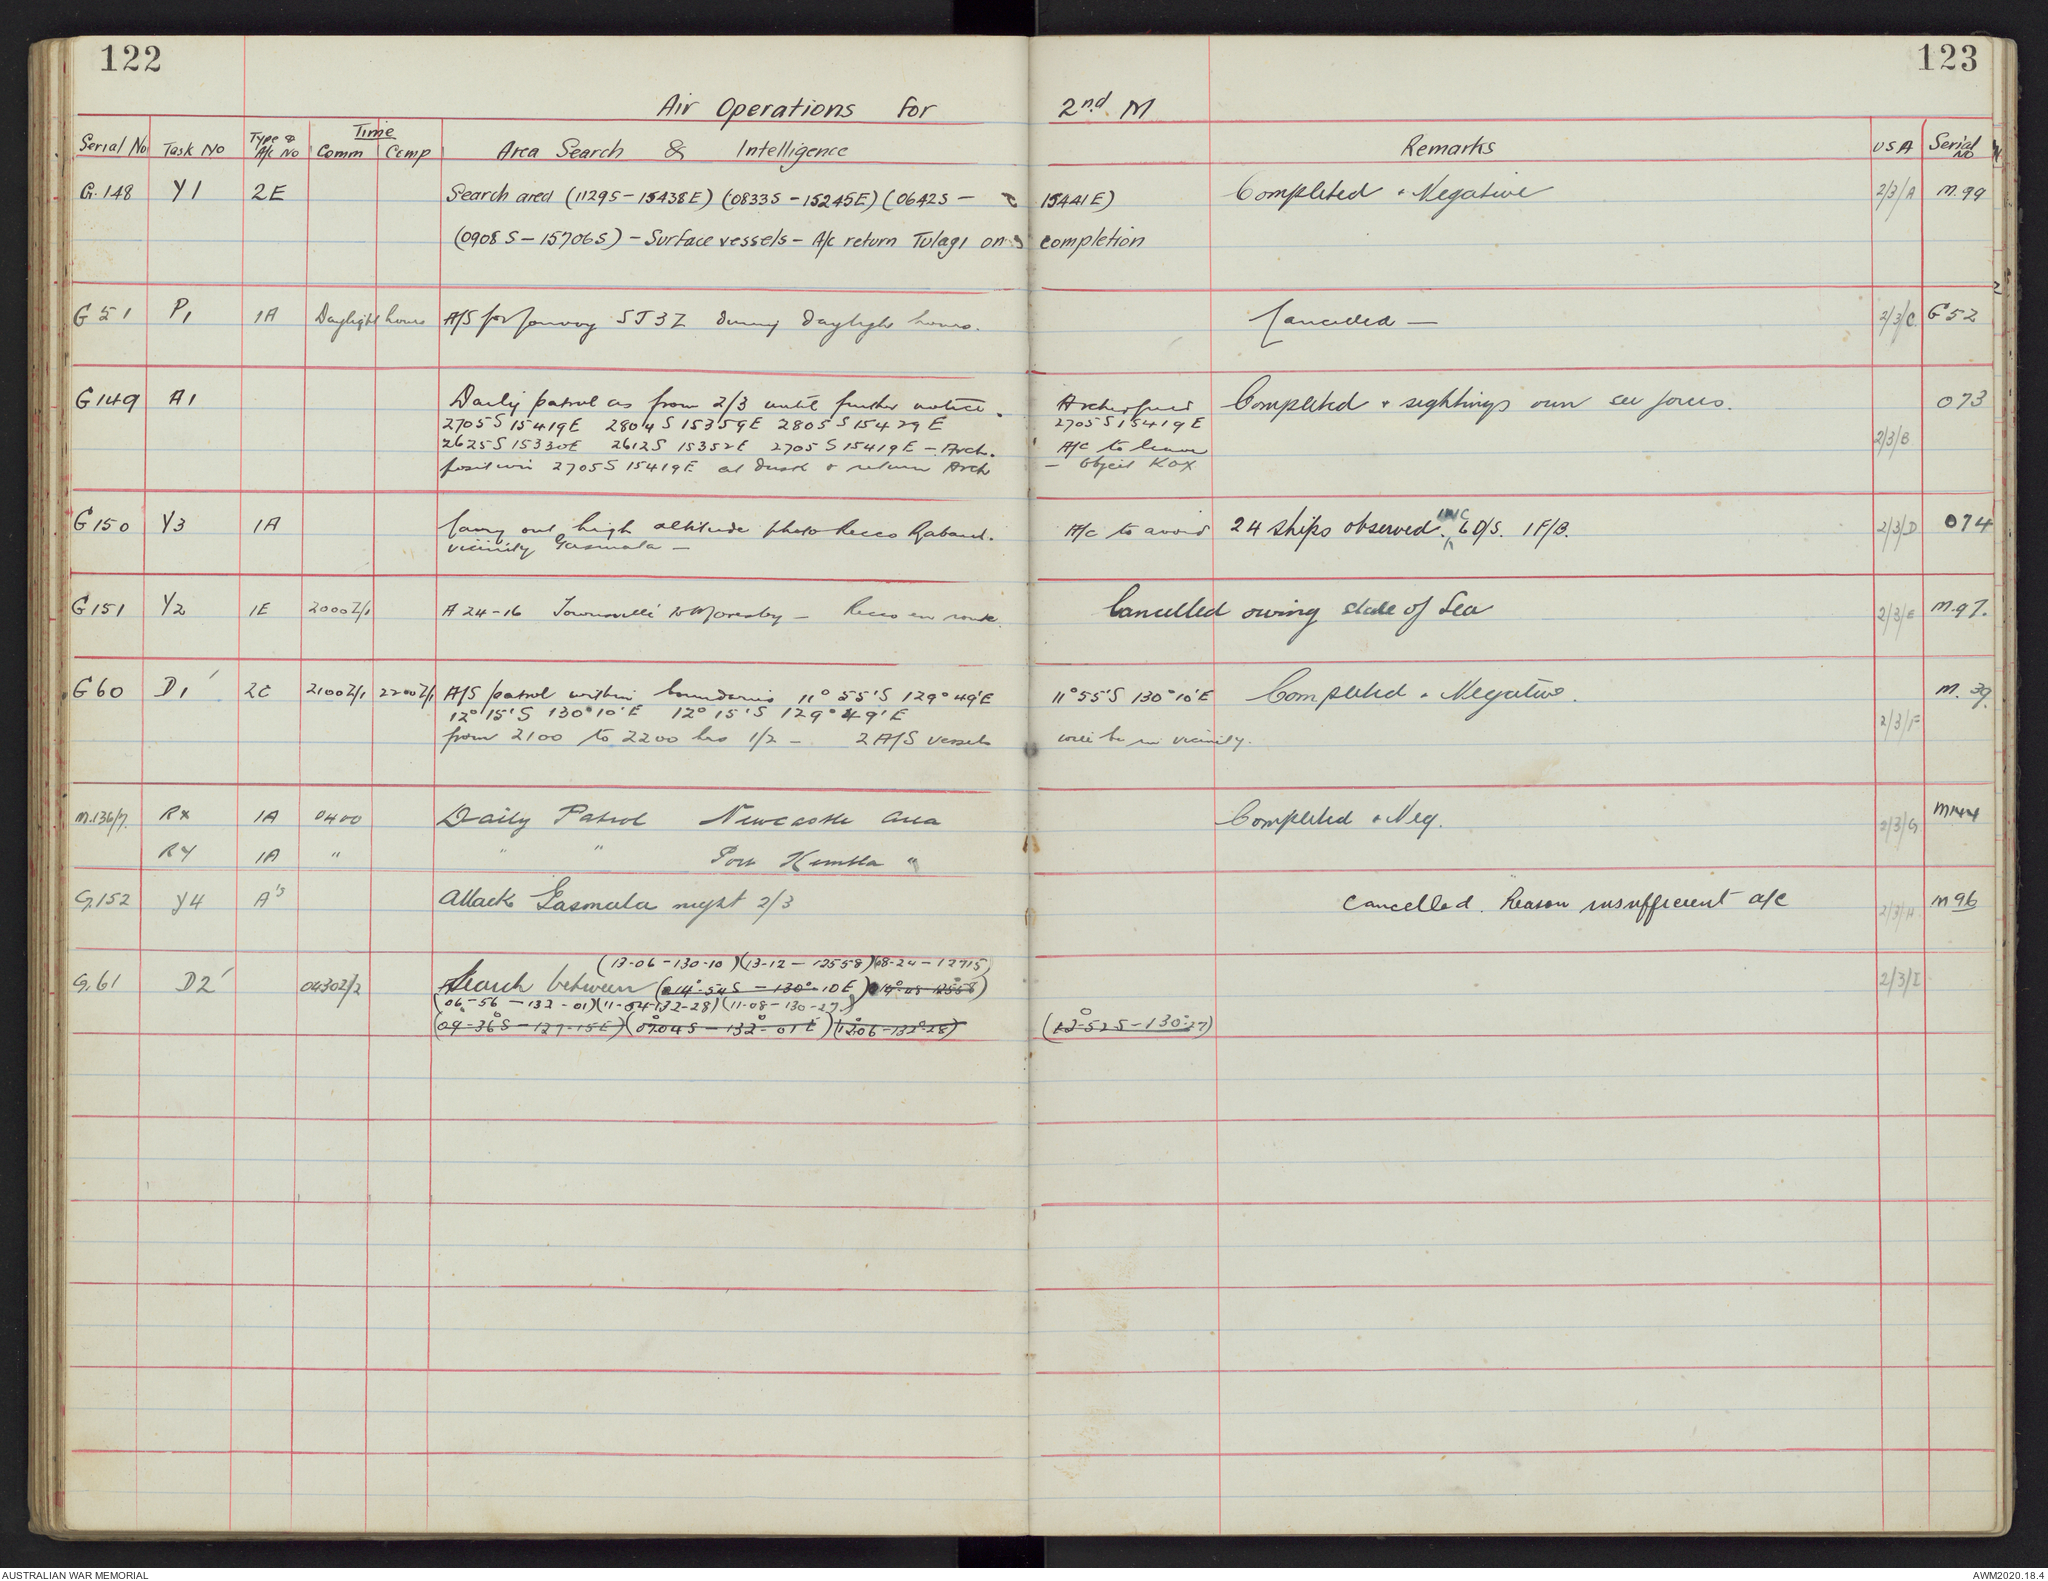 122
123
Air Operations for 2nd M
Time
Serial No Task No Type & A/c No Comm Comp Area Search & Intelligence Remarks USA Serial No
G.148 Y1 2E Search area (1129S-15438E) (0833S-15245E) (0642S- 15441E) Completed & Negative 2/3/A M.99
(0908S-15706S) - Surface vessels - A/c return Tulagi on completion
G51 P1 1A Daylight hours A/S for Convoy ST37 during daylight hours. Cancelled — 2/3/C. G52
G149 A1 Daily patrol as from 2/3 until further notice. Archerfield Completed & sightings own sea forces. 073
2705S 15419E 2804S 15359E 2805S 15429E 2705S 15419E
2625S 15330E 2612S 15352E 2705S 15419E - Arch. A/c to leave 2/3/B
position 2705S 15419E at dusk & return Arch - Object KOX
G150 Y3 1A Carry out high altitude photo Recco Rabaul. A/c to avoid 24 ships observed. INC 6 D/S. 1 F/B. 2/3/D 074
vicinity Gasmata —
G151 Y2 1E 2000Z/1 A24-16 Townsville to Moresby — Recco en route. Cancelled owing state of Sea 2/3/E M.97.
G60 D1 2C 2100Z/1 2200Z/1 A/S patrol within boundaries 11° 55'S 129° 49'E 11° 55'S 130° 10'E Completed & Negative. M.39.
12° 15'S 130° 10'E 12° 15'S 129° 49'E
from 2100 to 2200 hrs 1/2 - 2 A/S vessels will be in vicinity. 2/3/F
M.136/7. RX 1A 0400 Daily Patrol Newcastle Area Completed & Neg. 2/3/G
RY 1A " " " Port Kembla "
G.152 Y4 A's Attack Gasmata night 2/3 Cancelled. Reason insufficient a/c 2/3/H M96
(13-06-130-10)(13-12-12558)(08-24-12715)
G.61 D2' 0430Z/2 Search between (14°-54S-130°-10E) 2/3/I
(06-56-132-01)(11-04-132-28)(11-08-130-27)
(09-36S-127-15E)(0704S-132°-01E)(12°06-132°28) (12°-52S-130°-27)
AUSTRALIAN WAR MEMORIAL
AWM2020.18.4